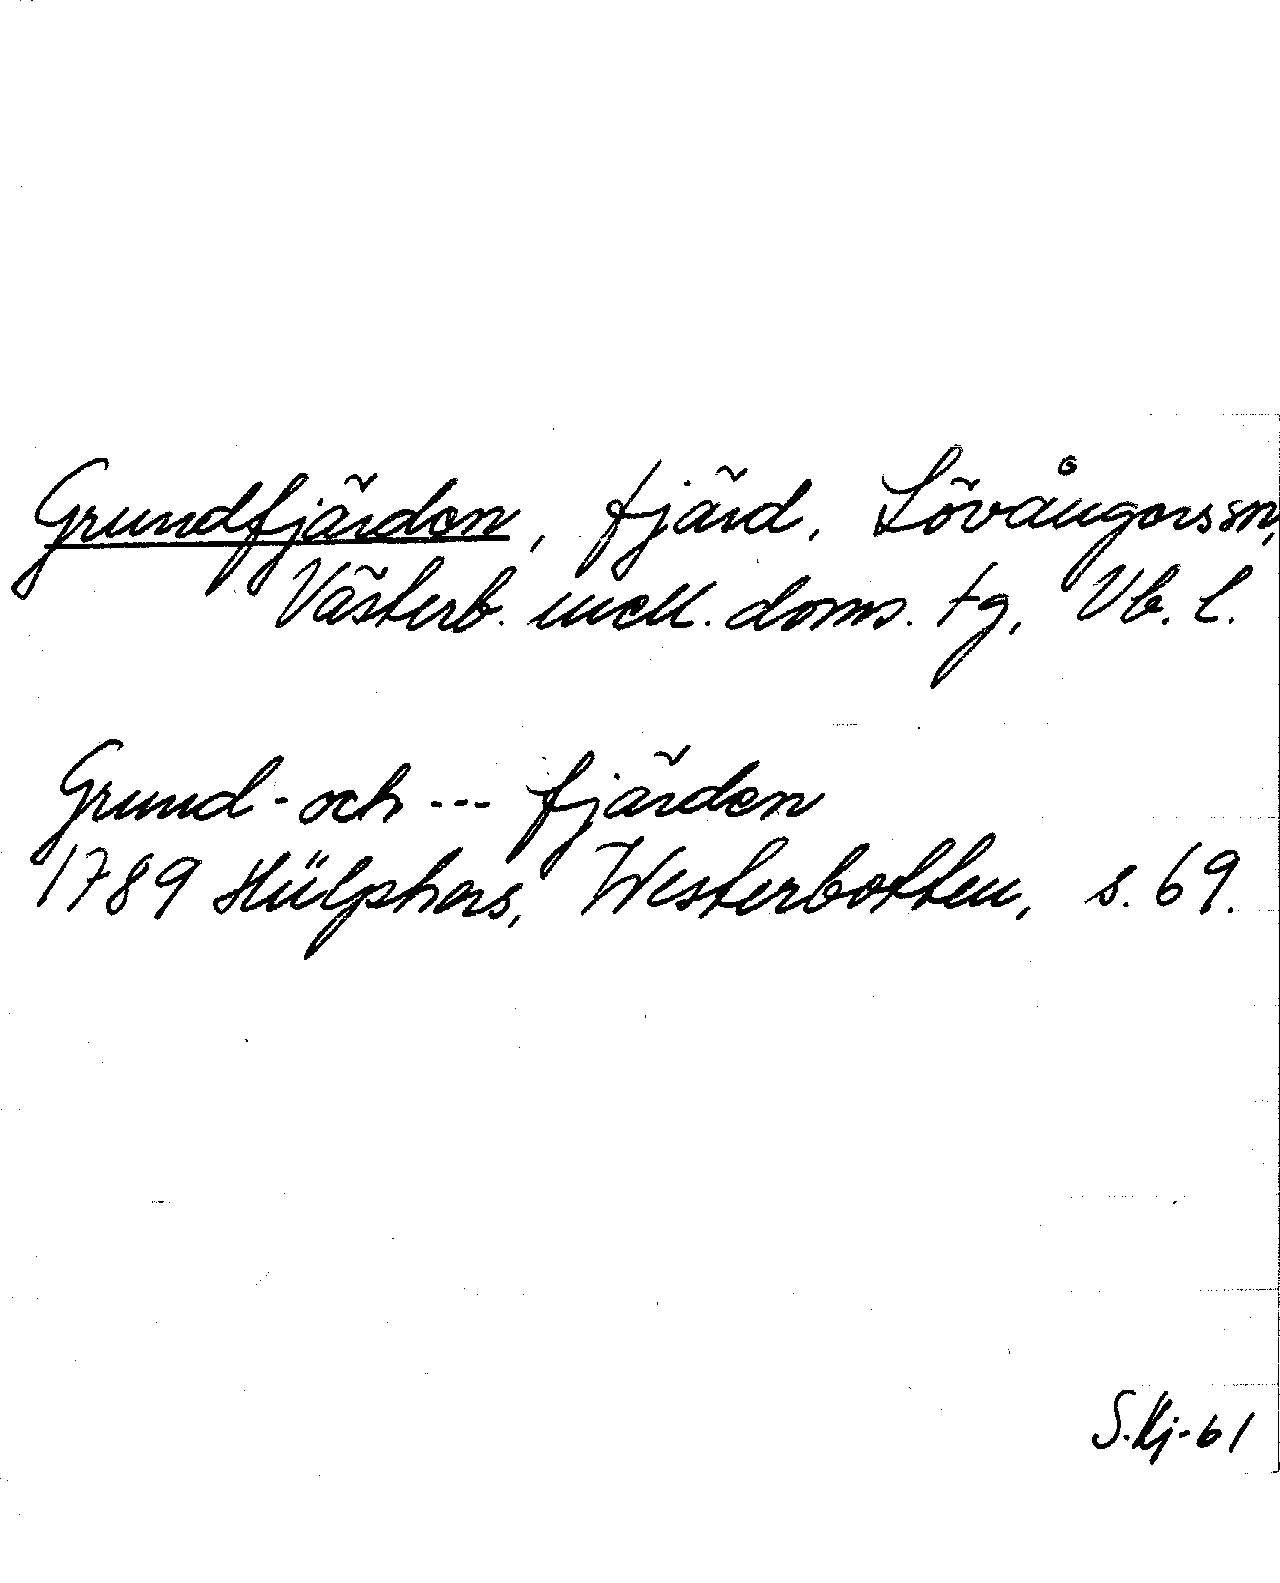 Grundfjärden, fjärd, Lövångers sn,
Västerb. mell. doms. tg, Vb. l.
Grund- och --- fjärden
1789 Hülphers, Westerbotten, s. 69.
S.Kj-61